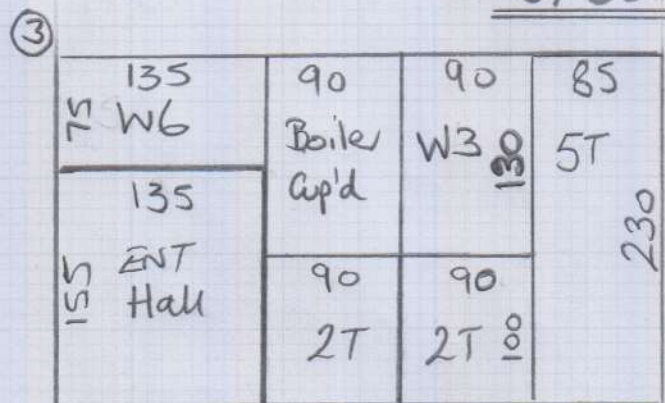 3
135
75 W6
135
155 ENT
Hall
90
Boiler
Cup'd
90
2T
90
W3 130
90
2T 100
85
5T
230